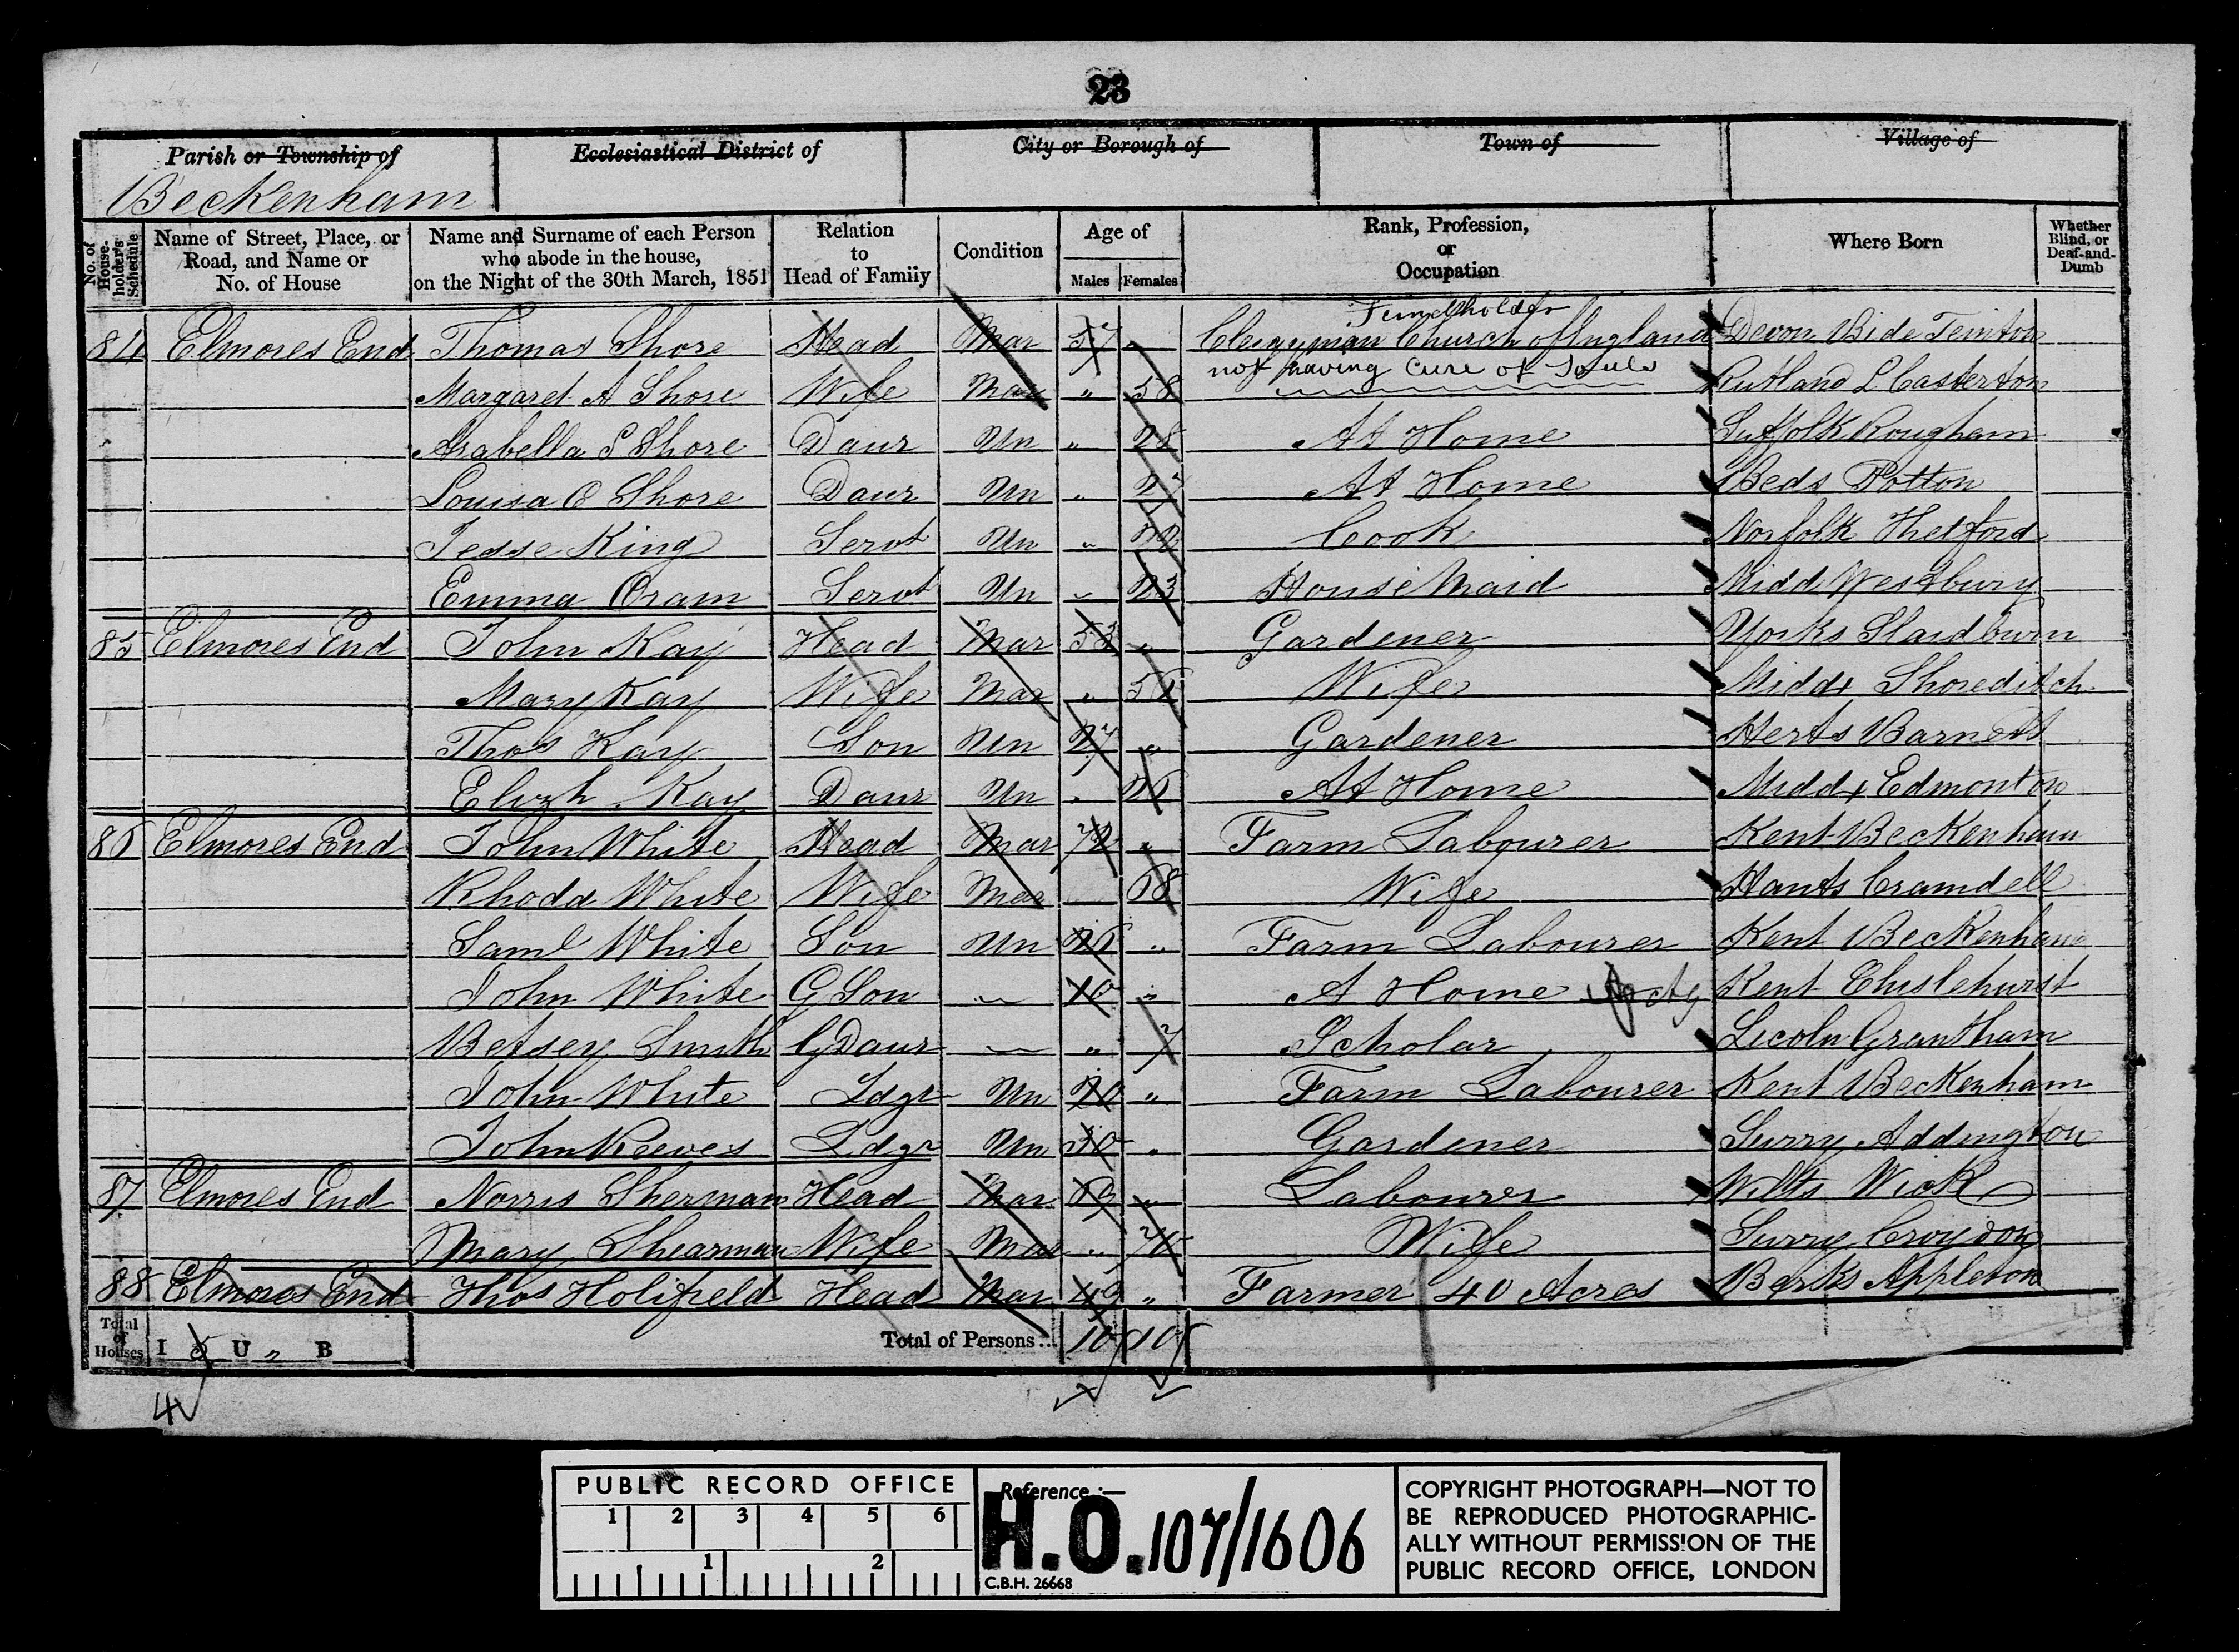 23
Parish or Township of Ecclesiastical District of City or Borough of Town of Village of
Beckenham
No. of House-holder's Schedule Name of Street, Place, or Road, and Name or No. of House Name and Surname of each Person who abode in the house, on the Night of the 30th March, 1851 Relation to Head of Family Condition Age of Males Females Rank, Profession, or Occupation Where Born Whether Blind, or Deaf-and-Dumb
Fundholder
84 Elmores End Thomas Shore Head Mar 57 " Clergyman Church of England Devon Bide Teinton
not having Cure of Souls
Margaret A Shore Wife Mar " 58 Rutland L Casterton
Arabella S Shore Daur Un " 28 At Home Suffolk Rougham
Louisa C Shore Daur Un " 27 At Home Beds Potton
Jesse King Servt Un " Cook Norfolk Thetford
Emma Oram Servt Un " 23 House Maid Midd Westbury
85 Elmores End John Kay Head Mar 53 " Gardener Yorks Slaidburn
Mary Kay Wife Mar " 56 Wife Middx Shoreditch
Thos Kay Son Un 27 " Gardener Herts Barnett
Elizh Kay Daur Un " 26 At Home Middx Edmonton
86 Elmores End John White Head Mar 72 " Farm Labourer Kent Beckenham
Rhoda White Wife Mar 68 Wife Hants Cramdell
Saml White Son Un 26 " Farm Labourer Kent Beckenham
John White G Son " 10 " A Home Kent Chislehurst
Betsey Smith G Daur " " 7 Scholar Licoln Grantham
John White Ldgr Un 20 " Farm Labourer Kent Beckenham
John Reeves Ldgr Un 30 " Gardener Surry Addington
87 Elmores End Norris Sherman Head Mar 69 " Labourer Wilts Wick
Mary Shearman Wife Mar " 70 Wife Surry Croydon
88 Elmores End Thos Holifield Head Mar 49 " Farmer 40 Acres Berks Appleton
Total of Houses I 5 U " B Total of Persons... 10 10
4
PUBLIC RECORD OFFICE
1 2 3 4 5 6
1 2
Reference :—
H.O. 107/1606
C.B.H. 26668
COPYRIGHT PHOTOGRAPH—NOT TO
BE REPRODUCED PHOTOGRAPHIC-
ALLY WITHOUT PERMISSION OF THE
PUBLIC RECORD OFFICE, LONDON